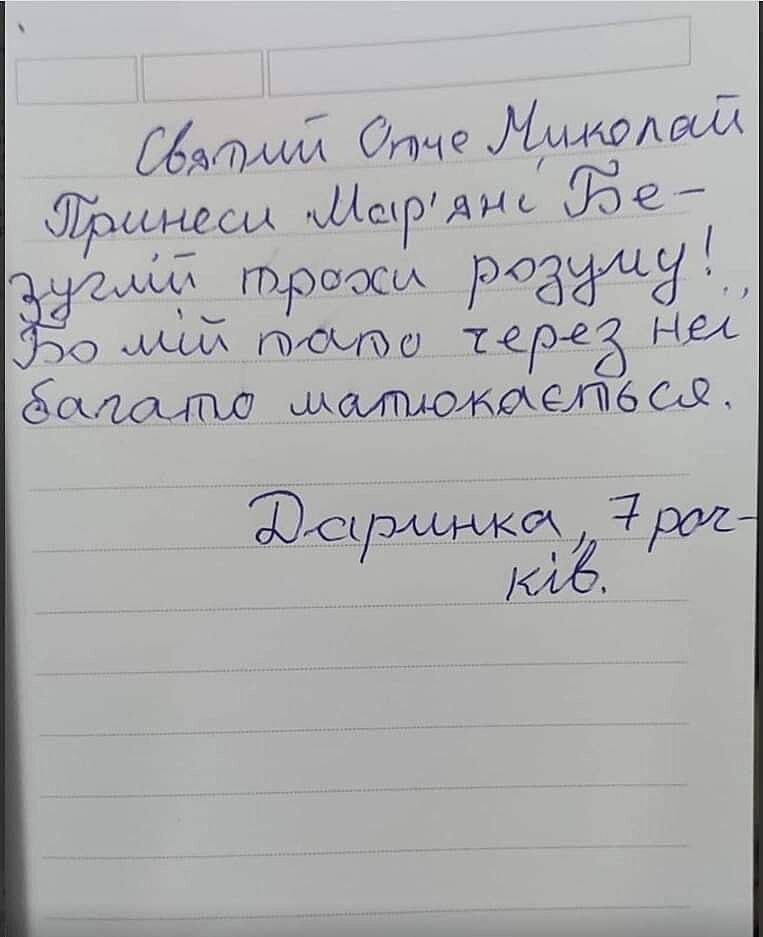 Святий Отче Миколай
Принеси Мар'яні Бе-
зуглій трохи розуму!
Бо мій тато через неї
багато матюкається.
Даринка, 7 роч-
ків.